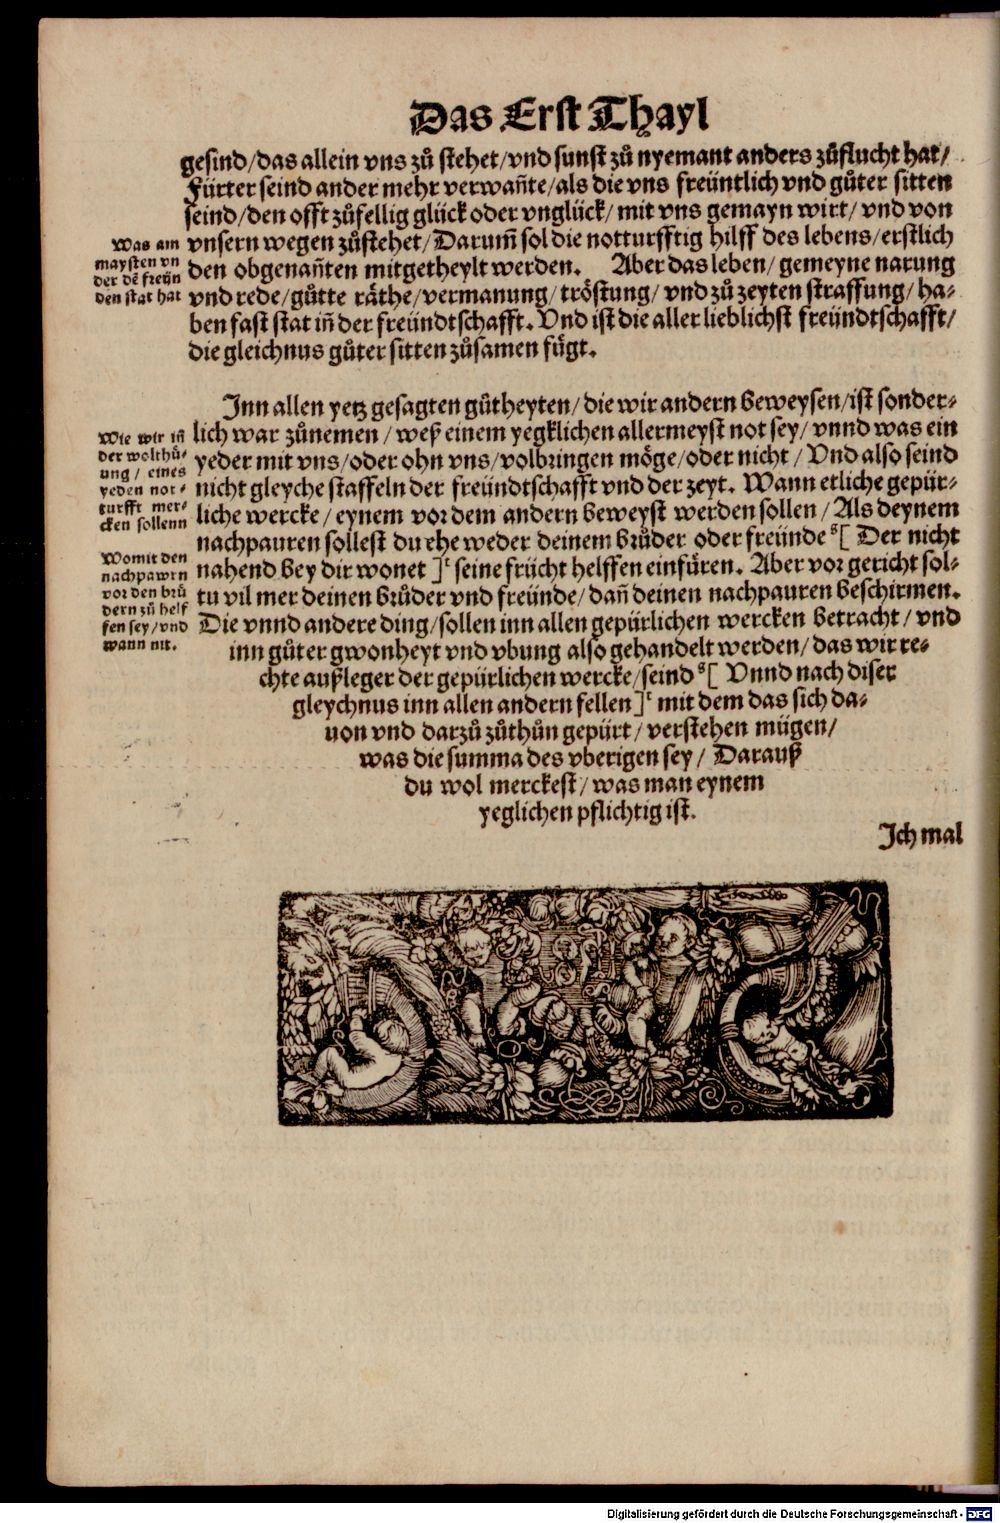 Das Erst Thayl
gesind/das allein vns zů stehet/vnd sunst zů nyemant anders zůflucht hat/
Fürter seind ander mehr verwañte/als die vns freüntlich vnd gůter sitten
seind/den offt zůfellig glück oder vnglück/mit vns gemayn wirt/vnd von
vnsern wegen zůstehet/Darum̃ sol die notturfftig hilff des lebens/erstlich
den obgenañten mitgetheylt werden. Aber das leben/gemeyne narung
vnd rede/gůtte räthe/vermanung/tröstung/vnd zů zeyten straffung/ha-
ben fast stat iñ der freündtschafft. Vnd ist die aller lieblichst freündtschafft/
die gleichnus gůter sitten zůsamen fügt.
Was am
maysten vn
der dẽ freün
den stat hat
Inn allen yetz gesagten gůtheyten/die wir andern beweysen/ist sonder-
lich war zůnemen/weß einem yegklichen allermeyst not sey/vnnd was ein
yeder mit vns/oder ohn vns/volbringen möge/oder nicht/Vnd also seind
nicht gleyche staffeln der freündtschafft vnd der zeyt. Wann etliche gepür-
liche wercke/eynem vor dem andern beweyst werden sollen/Als deynem
nachpauren sollest du ehe weder deinem brůder oder freünde s[ Der nicht
nahend bey dir wonet ]t seine frücht helffen einfüren. Aber vor gericht sol-
tu vil mer deinen brůder vnd freünde/dañ deinen nachpauren beschirmen.
Die vnnd andere ding/sollen inn allen gepürlichen wercken betracht/vnd
inn gůter gwonheyt vnd vbung also gehandelt werden/das wir re-
chte außleger der gepürlichen wercke/seind s[ Vnnd nach diser
gleychnus inn allen andern fellen ]t mit dem das sich da-
uon vnd darzů zůthůn gepürt/verstehen mügen/
was die summa des vberigen sey/Darauß
du wol merckest/was man eynem
yeglichen pflichtig ist.
Wie wir iñ
der wolthů-
ung/eines
yeden not-
turfft mer-
cken sollenn
Womit den
nachpawrn
vor den brů
dern zů helf
fen sey/vnd
wann nit.
Ich mal
Digitalisierung gefördert durch die Deutsche Forschungsgemeinschaft - DFG